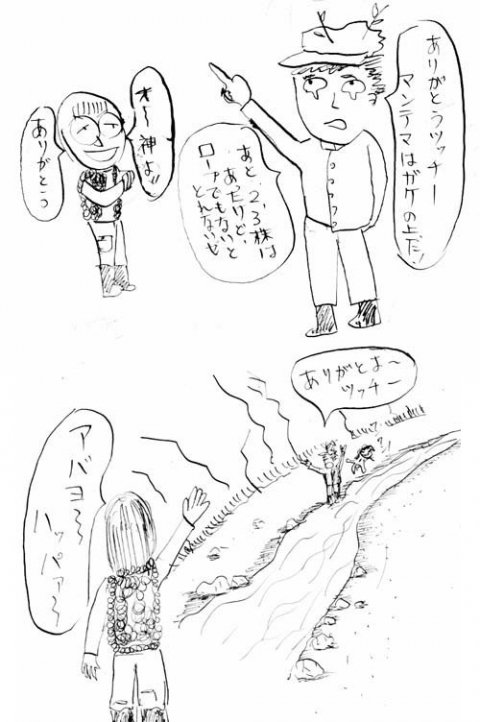 ありがとうツッチー
マンテマはガケの上だ!
あと、2,3株は
あったけど、
ロープでもないと
とれないぜ
オ〜神よ!!
ありがとう
ありがとよ〜
ツッチー
アバヨ〜〜
ハッパァ〜